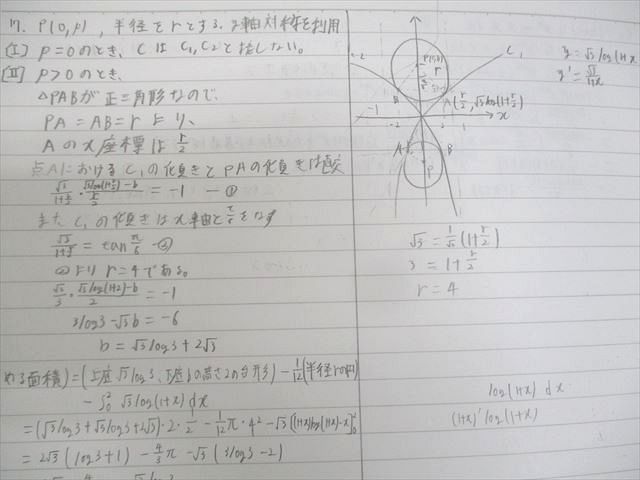 17. P(0,p), 半径をrとする. y軸対称を利用
(I) p=0のとき、CはC₁,C₂と接しない。
(II) p>0のとき、
△PABが正三角形なので、
PA=AB=rより、
Aのx座標はr/2
点AにおけるC₁の傾きとPAの傾きは直交
√3/(1+r/2)・(√3log(1+r/2)-b)/(r/2) = -1 ―①
またC₁の傾きはx軸とπ/6をなす
√3/(1+r/2) = tan π/6 ―②
②よりr=4である。
√3/3・(√3log(1+2)-b)/2 = -1
3log3-√3b=-6
b=√3log3+2√3
める面積)=(上底√3log3、下底bの高さ2の台形) - 1/12(半径rの円)
- ∫₀² √3log(1+x) dx
=(√3log3+√3log3+2√3)・2・1/2 - 1/12π・4² - √3[(1+x)log(1+x)-x]₀²
=2√3(log3+1) - 4/3π - √3(3log3-2)
C₁
A(r/2, √3log(1+r/2))
x
-1
-2
1
2
A
B
P
B
r
y=√3log(1+x
y'=√3/(1+x)
√3=1/√3(1+r/2)
3=1+r/2
r=4
log(1+x) dx
(1+x)'log(1+x)